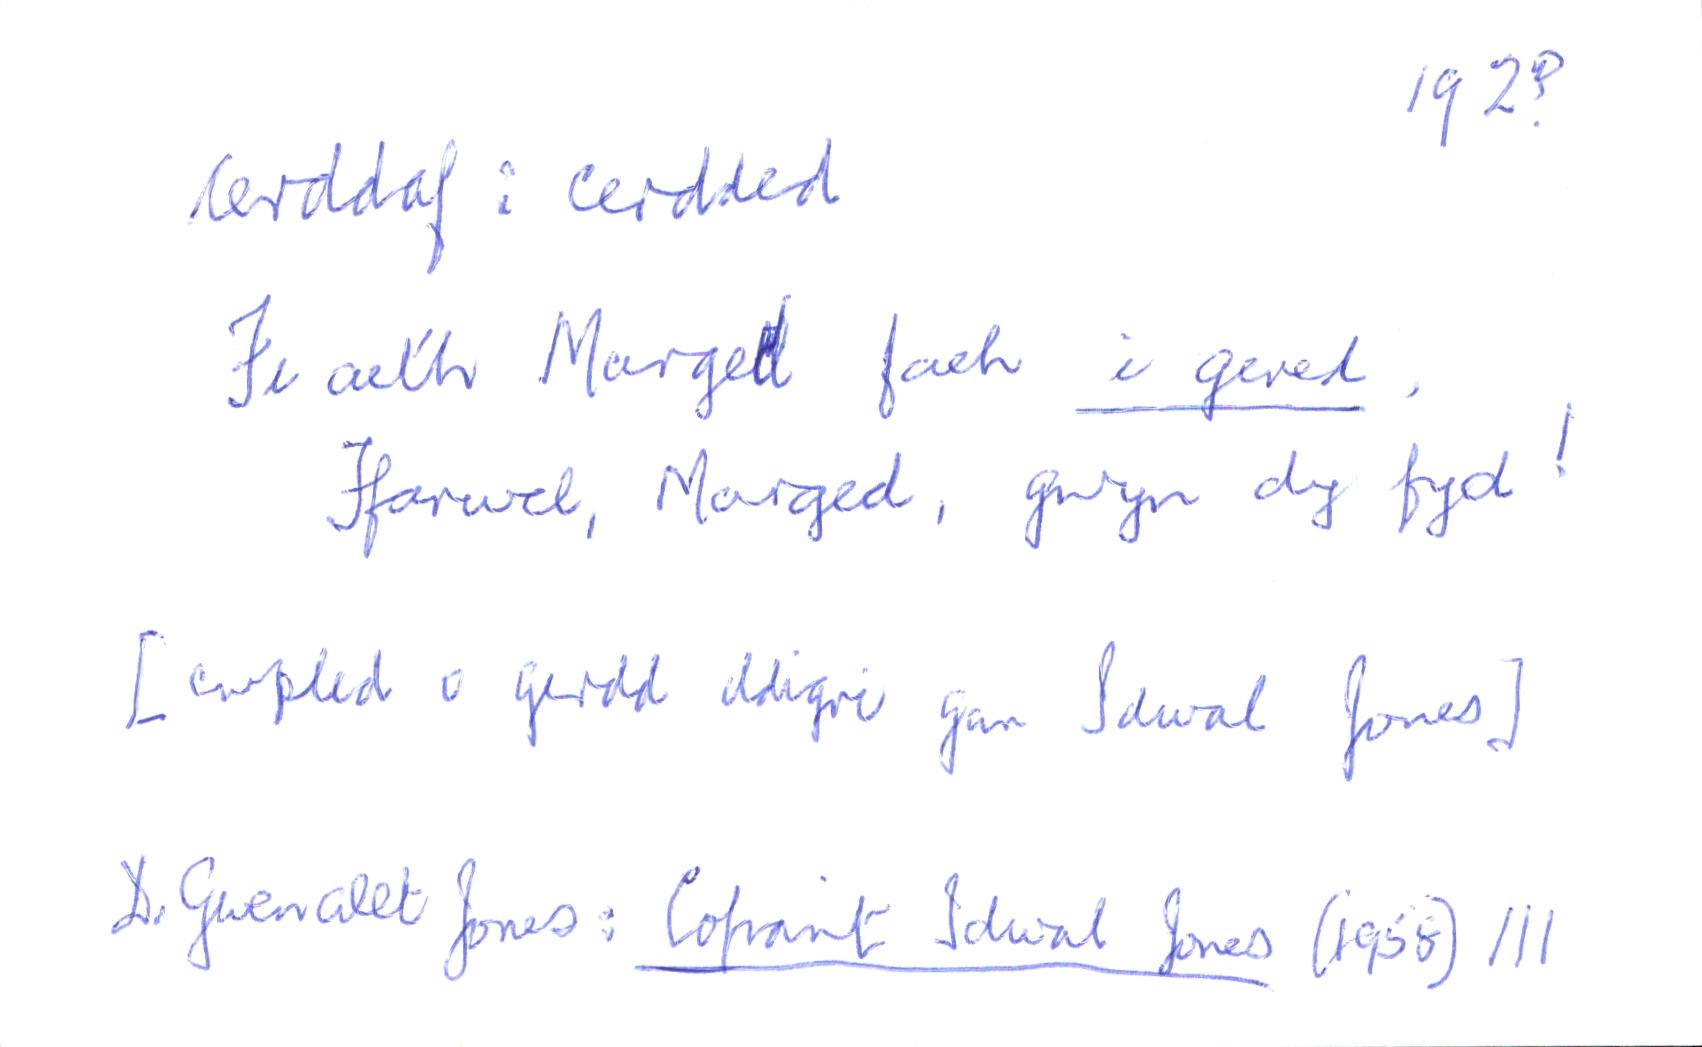 192?
cerddaf : cerdded
Fe aeth Marged fach i gered,
Ffarwel, Marged, gwyn dy fyd!
[cwpled o gerdd ddigri gan Idwal Jones]
D. Gwenallt Jones: Cofiant Idwal Jones (1958) 111